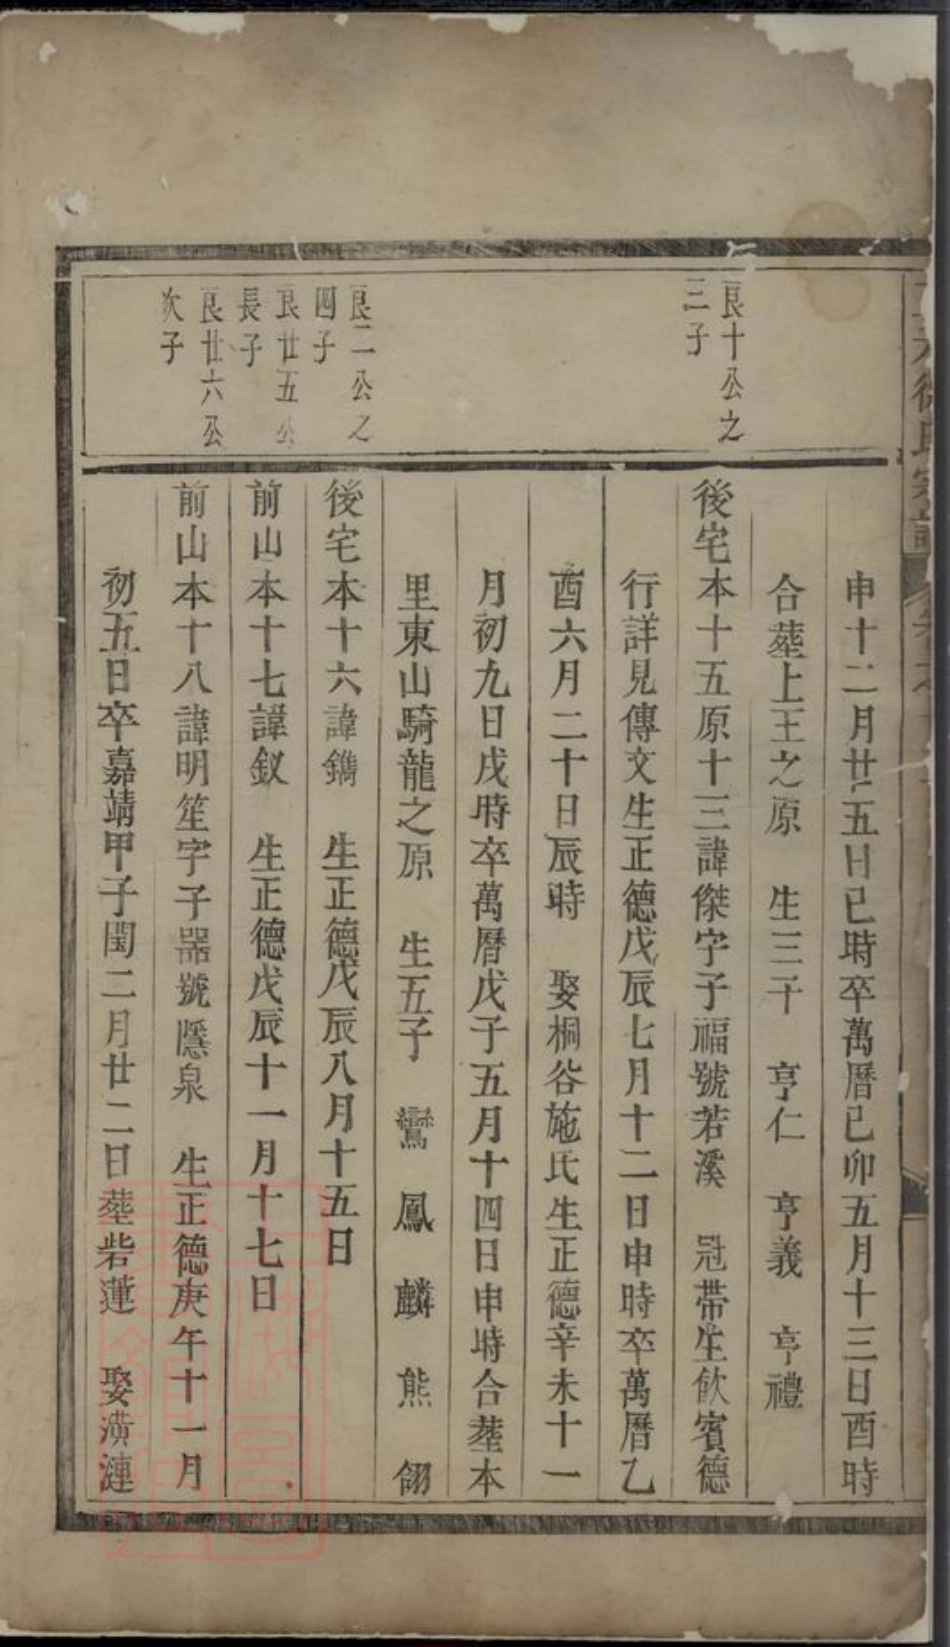 徐氏宗譜
申十二月廿五日已時卒萬曆已卯五月十三日酉時
合塟上王之原　生三子　亨仁　亨義　亨禮
艮十公之
三子
後宅本十五原十三諱傑字子福號若溪　冠帶生飲賓德
行詳見傳文生正德戊辰七月十二日申時卒萬曆乙
酉六月二十日辰時　娶桐谷施氏生正德辛未十一
月初九日戌時卒萬曆戊子五月十四日申時合塟本
里東山騎龍之原　生五子　鸞　鳳　麟　熊　翎
艮二公之
四子
後宅本十六諱鐫　生正德戊辰八月十五日
艮廿五公
長子
前山本十七諱釵　生正德戊辰十一月十七日
艮廿六公
次子
前山本十八諱明笙字子器號隱泉　生正德庚午十一月
初五日卒嘉靖甲子閏二月廿二日塟砦蓮　娶潢漣